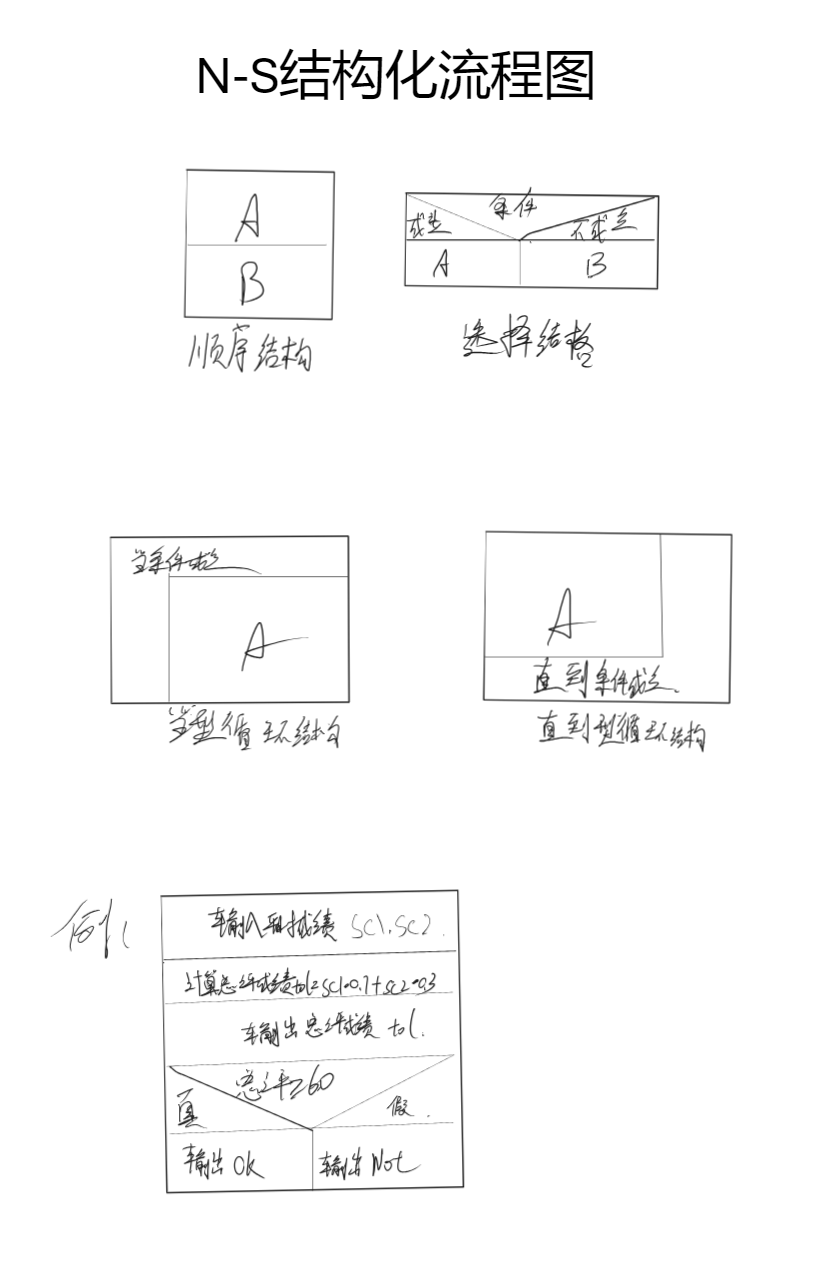 N-S结构化流程图
A
B
顺序结构
条件
成立
不成立
A
B
选择结构
当条件成立
A
当型循环结构
A
直到条件成立.
直到型循环结构
例:
输入两成绩 SC1.SC2.
计算总评成绩tol=SC1*0.7+SC2*0.3
输出总评成绩 tol.
总评≥60
真
假.
输出 Ok
输出 Not